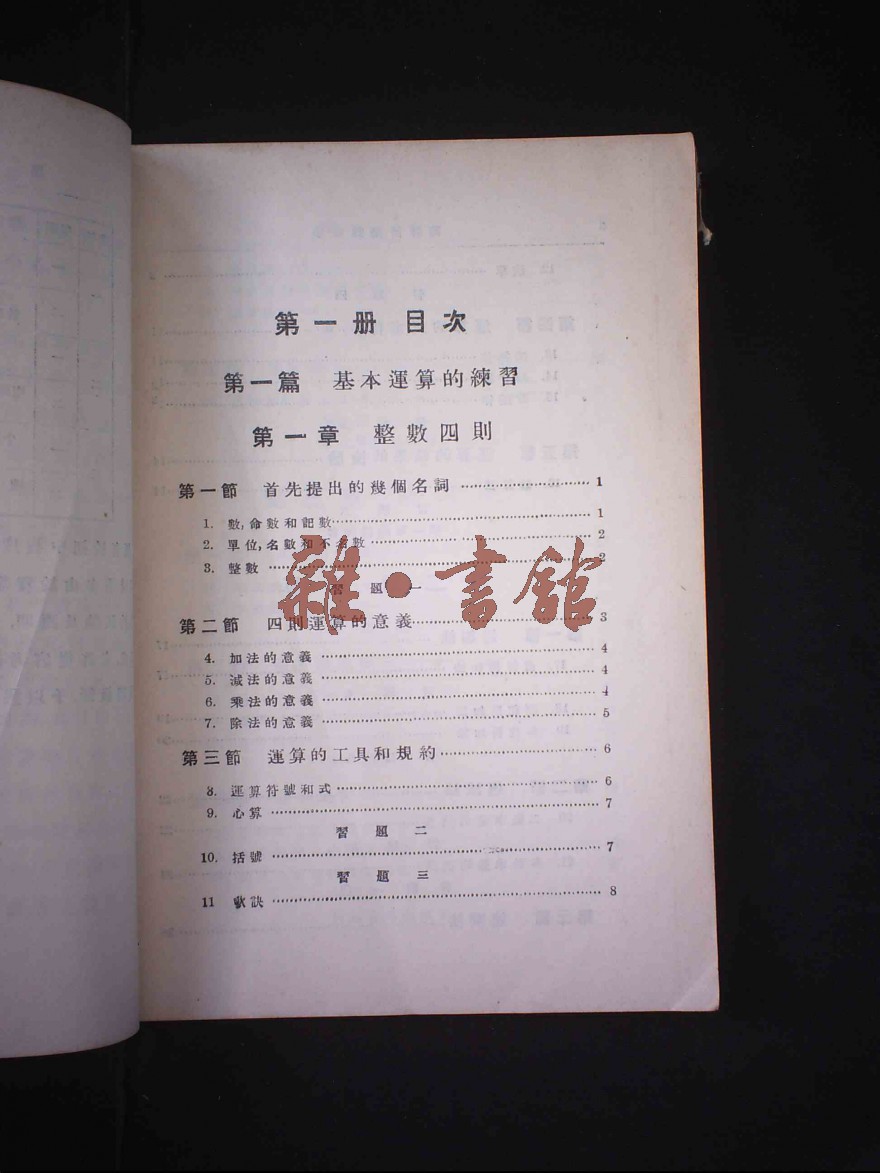 第一册 目次
第一篇 基本運算的練習
第一章 整數四則
第一節 首先提出的幾個名詞 …… 1
1. 數,命數和記數 …… 1
2. 單位,名數和不名數 …… 2
3. 整數 …… 2
習題一
第二節 四則運算的意義 …… 3
4. 加法的意義 …… 4
5. 減法的意義 …… 4
6. 乘法的意義 …… 4
7. 除法的意義 …… 5
第三節 運算的工具和規約 …… 6
8. 運算符號和式 …… 6
9. 心算 …… 7
習題二
10. 括號 …… 7
習題三
11 歌訣 …… 8
雜·書館